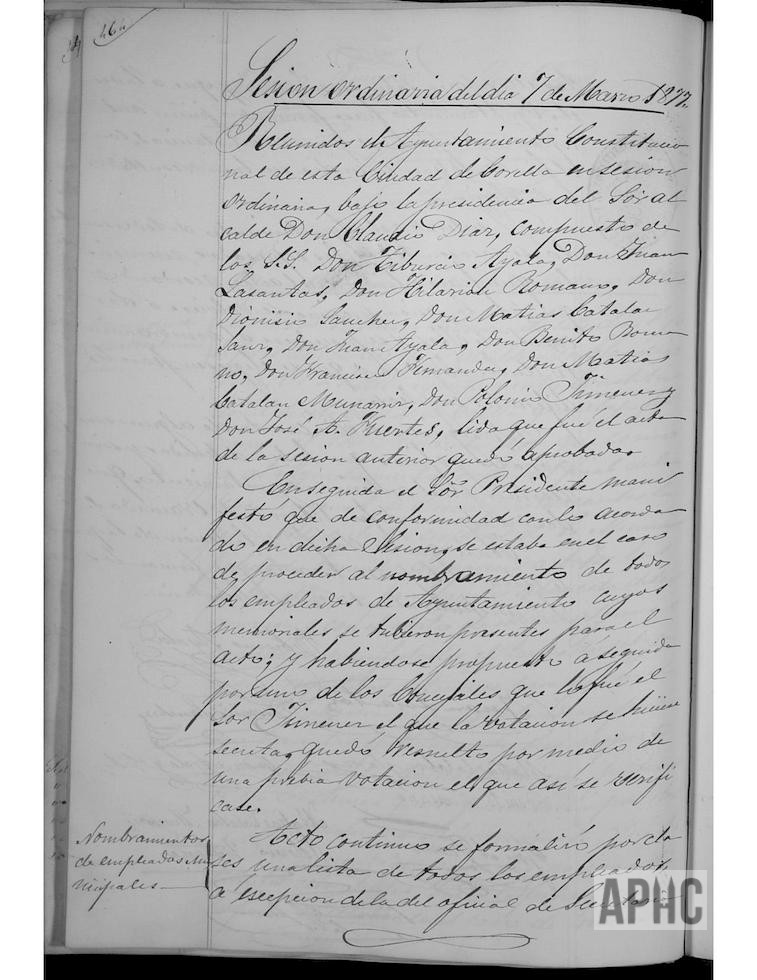 464
Sesion ordinaria del dia 7 de Marzo 1877.
Reunidos el Ayuntamiento Constitucio
nal de esta Ciudad de Corella en sesion
ordinaria, bajo la presidencia del Sor al
calde Don Claudio Diaz, compuesto de
los S.S. Don Tiburcio Ayala, Don Juan
Lasantas, Don Hilarion Romano, Don
Dionisio Sanchez, Don Matias Catalan
Sanz, Don Juan Ayala, Don Benito Roma
no, Don Francisco Fernandez, Don Matias
Catalan Munarriz, Don Polonio Jimenez y
Don José A. Fuertes, lida que fué el acta
de la sesion anterior quedó aprobada.
Enseguida el Sor Presidente mani
festó que de conformidad con lo acorda
do en dicha sesion, se estaba en el caso
de proceder al nombramiento de todos
los empleados de Ayuntamiento cuyos
memoriales se tubieron presentes para el
acto; y habiendose propuesto a seguida
por uno de los Concejales que lo fué el
Sor Jimenez el que la votacion se hiciese
secreta, quedó resuelto por medio de
una prebia votacion el que asi se verifi
case.
Nombramientos
de empleados Mu
nicipales
Acto continuo se formalizó por cla
ses una lista de todos los empleados
a escepcion de la del oficial de Secretaria
APHC